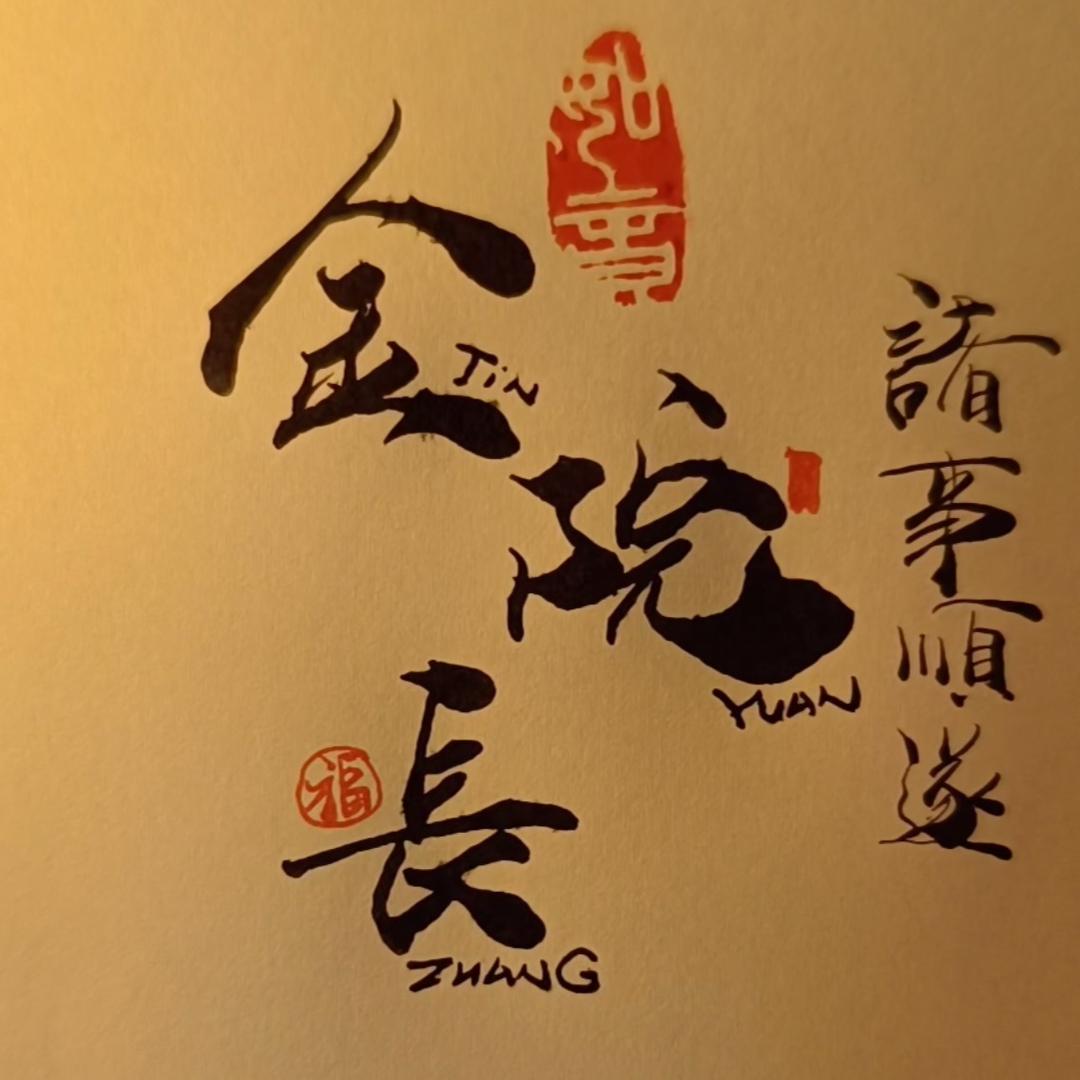 金
JiN
院
YUAN
長
ZHANG
福
諸事順遂